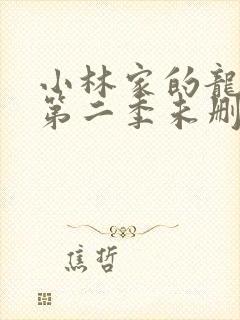 小林家的龍
第二季未刪
焦哲